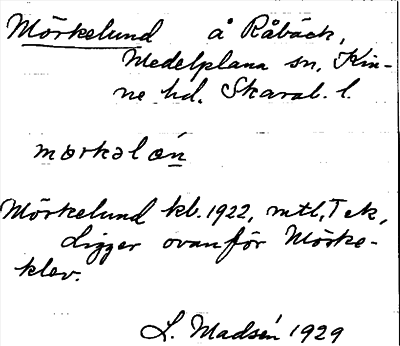 Mörkelund å Råbäck,
Medelplana sn, Kin-
ne hd. Skarab. l.
mørkəlón
Mörkelund kb. 1922, mtl, T ek,
Ligger ovanför Mörke-
klev.
L. Madsén 1929